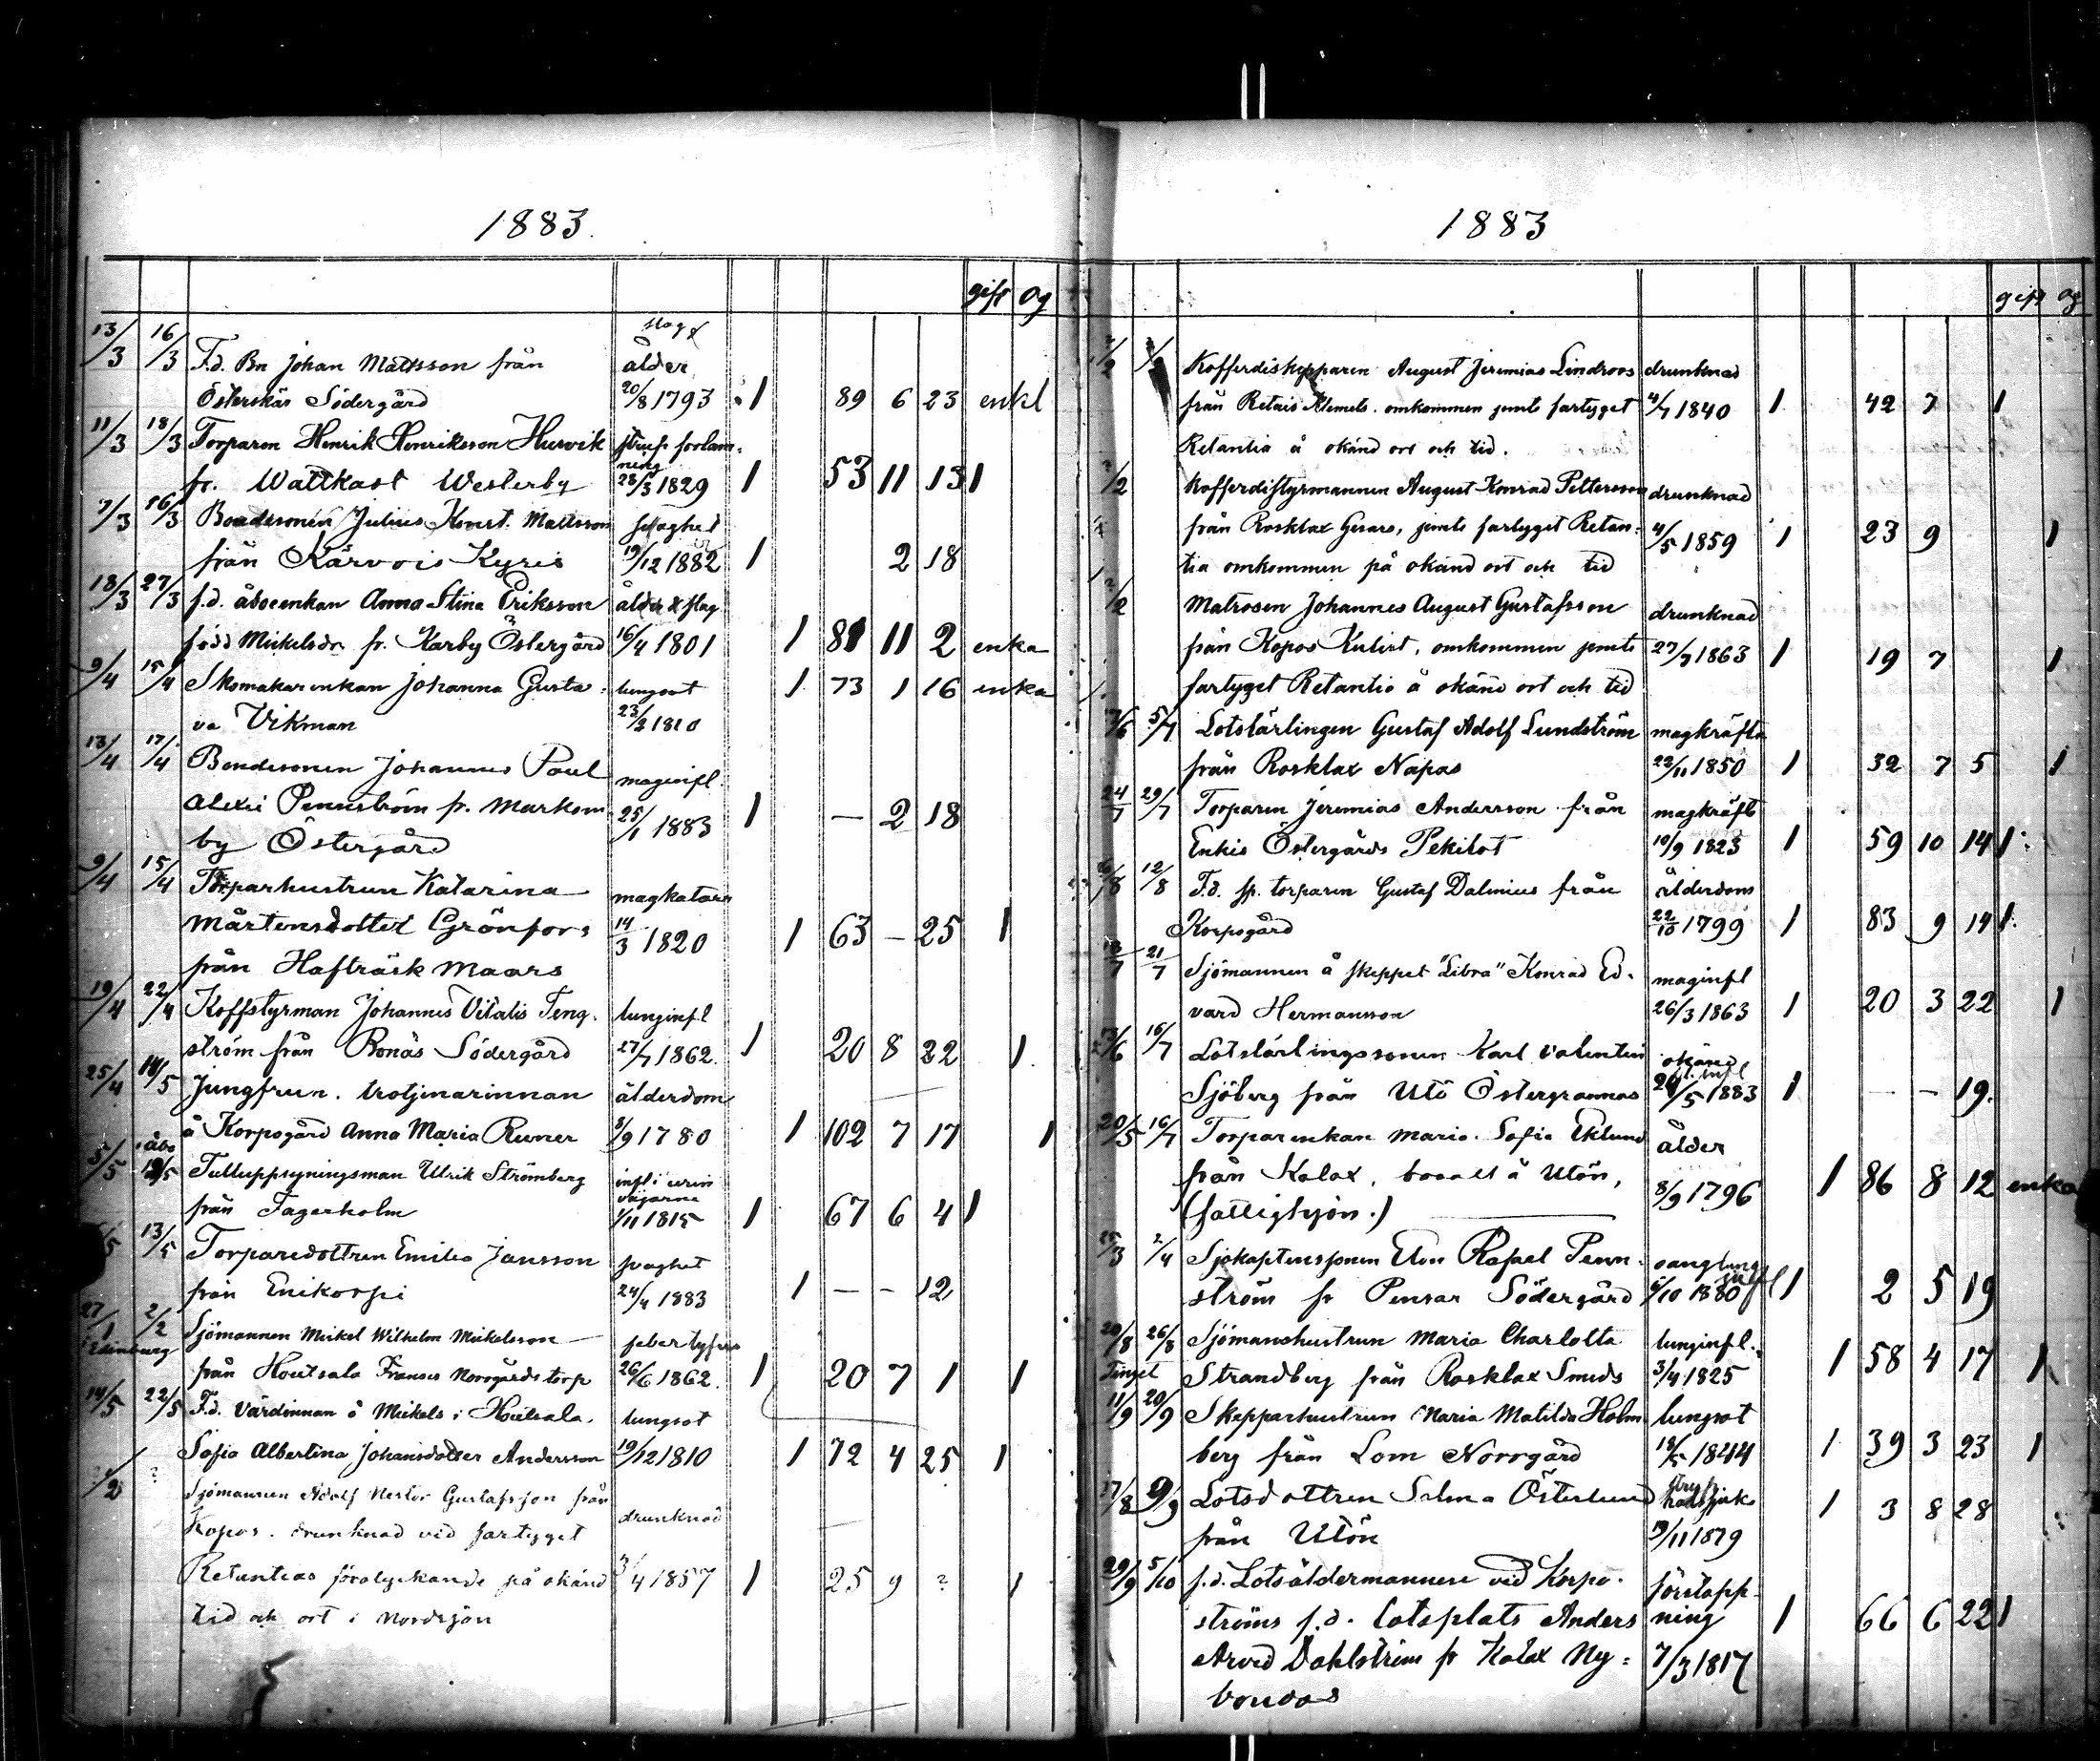 1883.
gift og
slag &
13/3 16/3 F.d. Bn Johan Mattsson från ålder
Österskär Södergård 20/8 1793 1 89 6 23 enkl
11/3 18/3 Torparen Henrik Henriksson Hurvik förlam-
ning
fr. Wattkast Westerby 28/3 1829 1 53 11 13 1
7/3 26/3 Bondesonen Julius Konst. Mattsson svaghet
från Kärvois Kyris 19/12 1882 1 2 18
18/3 27/3 f.d. åboenkan Anna Stina Eriksson ålder & slag
född Mickelsdr fr. Karby Östergård 16/4 1801 1 81 11 2 enka
9/4 15/4 Skomakarenkan Johanna Gusta- lungsot 1 73 1 16 enka
va Vikman 23/2 1810
13/4 17/4 Bondesonen Johannes Paul maginfl.
Alexei Pennström fr. Markom- 25/1 1883 1 — 2 18
by Östergård
9/4 15/4 Torparhustrun Katarina magkatarr
Mårtensdotter Grönfors 14/3 1820 1 63 — 25 1
från Hafträsk Maars
19/4 22/4 Koffstyrman Johannes Vitalis Teng- lunginfl
ström från Bonäs Södergård 27/7 1862. 1 20 8 22 1
25/4 14/5 Jungfrun. trotjenarinnan ålderdom
å Korpogård Anna Maria Runer 8/9 1780 1 102 7 17 1
åbo
5/5 12/5 Tulluppsyningsman Ulrik Strömberg infl i urin
vägarne
från Fagerholm 1/11 1815 1 67 6 4 1
/5 13/5 Torparedottren Emilia Jansson svaghet
från Enikorpi 24/4 1883 1 — - 12
27/1 2/2 Sjömannen Mickel Wilhelm Mickelsson — feber tyfus
i Edinburg
från Houtsala Franses Norrgårds torp 26/6 1862. 1 20 7 1 1
14/5 22/5 F.d. Värdinnan å Mickels i Hutsala. lungsot
Sofia Albertina Johansdotter Andersson 19/12 1810 1 72 4 25 1
?/2 ? Sjömannen Adolf Nestor Gustafsson från
Kopos. drunknad vid fartyget drunknad
Retantias förolyckande på okänd 3/4 1857 1 25 9 ? 1
tid och ort i Nordsjön
1883
gift og
?/2 Kofferdiskepparen August Jeremias Lindroos drunknad
från Retais Klemets. omkommen jemte fartyget 4/7 1840 1 42 7 1
Retantia å okänd ort och tid.
?/2 Kofferdistyrmannen August Konrad Pettersson drunknad
från Rosklax Gesars, jemte fartyget Retan- 4/5 1859 1 23 9 1
tia omkommen på okänd ort och tid
?/2 Matrosen Johannes August Gustafsson drunknad
från Kopos Kulirt, omkommen jemte 27/7 1863 1 19 7 1
fartyget Retantia å okänd ort och tid
/6 5/7 Lotslärlingen Gustaf Adolf Lundström magkräfta
från Rosklax Napas 22/11 1850 1 32 7 5 1
24/7 29/7 Torparen Jeremias Andersson från magkräft
Enkis Östergårds Pekilot 10/9 1823 1 59 10 14 1
/8 12/8 F.d. sp. torparen Gustaf Dalinius från ålderdom
Korpogård 22/10 1799 1 83 9 14 1
18/7 21/7 Sjömannen å skeppet "Libra" Konrad Ed- maginfl
vard Hermansson 26/3 1863 1 20 3 22 1
13/6 16/7 Lotslärlingssonen Karl Valentin okänd
Sjöberg från Utö Östergrannas 24/5 1883 1 — — 19.
20/5 16/7 Torparenkan Maria Sofia Eklund ålder
från Kalax, boealt å Utön, 8/9 1796 1 86 8 12 enka
(fattighjon.)
25/3 2/4 Sjökaptenssonen Elon Rafael Penn-
ström fr Pensar Södergård 6/10 1880 1 2 5 19
20/8 26/8 Sjömanshustrun Maria Charlotta lunginfl.
Strandberg från Rosklax Smeds 3/4 1825 1 58 4 17 1
11/9 20/9 Skepparhustrun Maria Matilda Holm- lungsot
berg från Lom Norrgård 18/5 1844 1 39 3 23 1
17/8 9/9 Lotsdottren Selma Österlund strup
halssjuka 1 3 8 28
från Utön 19/11 1879
29/9 5/10 f.d. Lotsåldermannen vid Korpo- förstopp-
ströms f.d. lotsplats Anders ning 1 66 6 22 1
Arvid Dahlström fr Kalax Ny= 7/3 1817
bondas